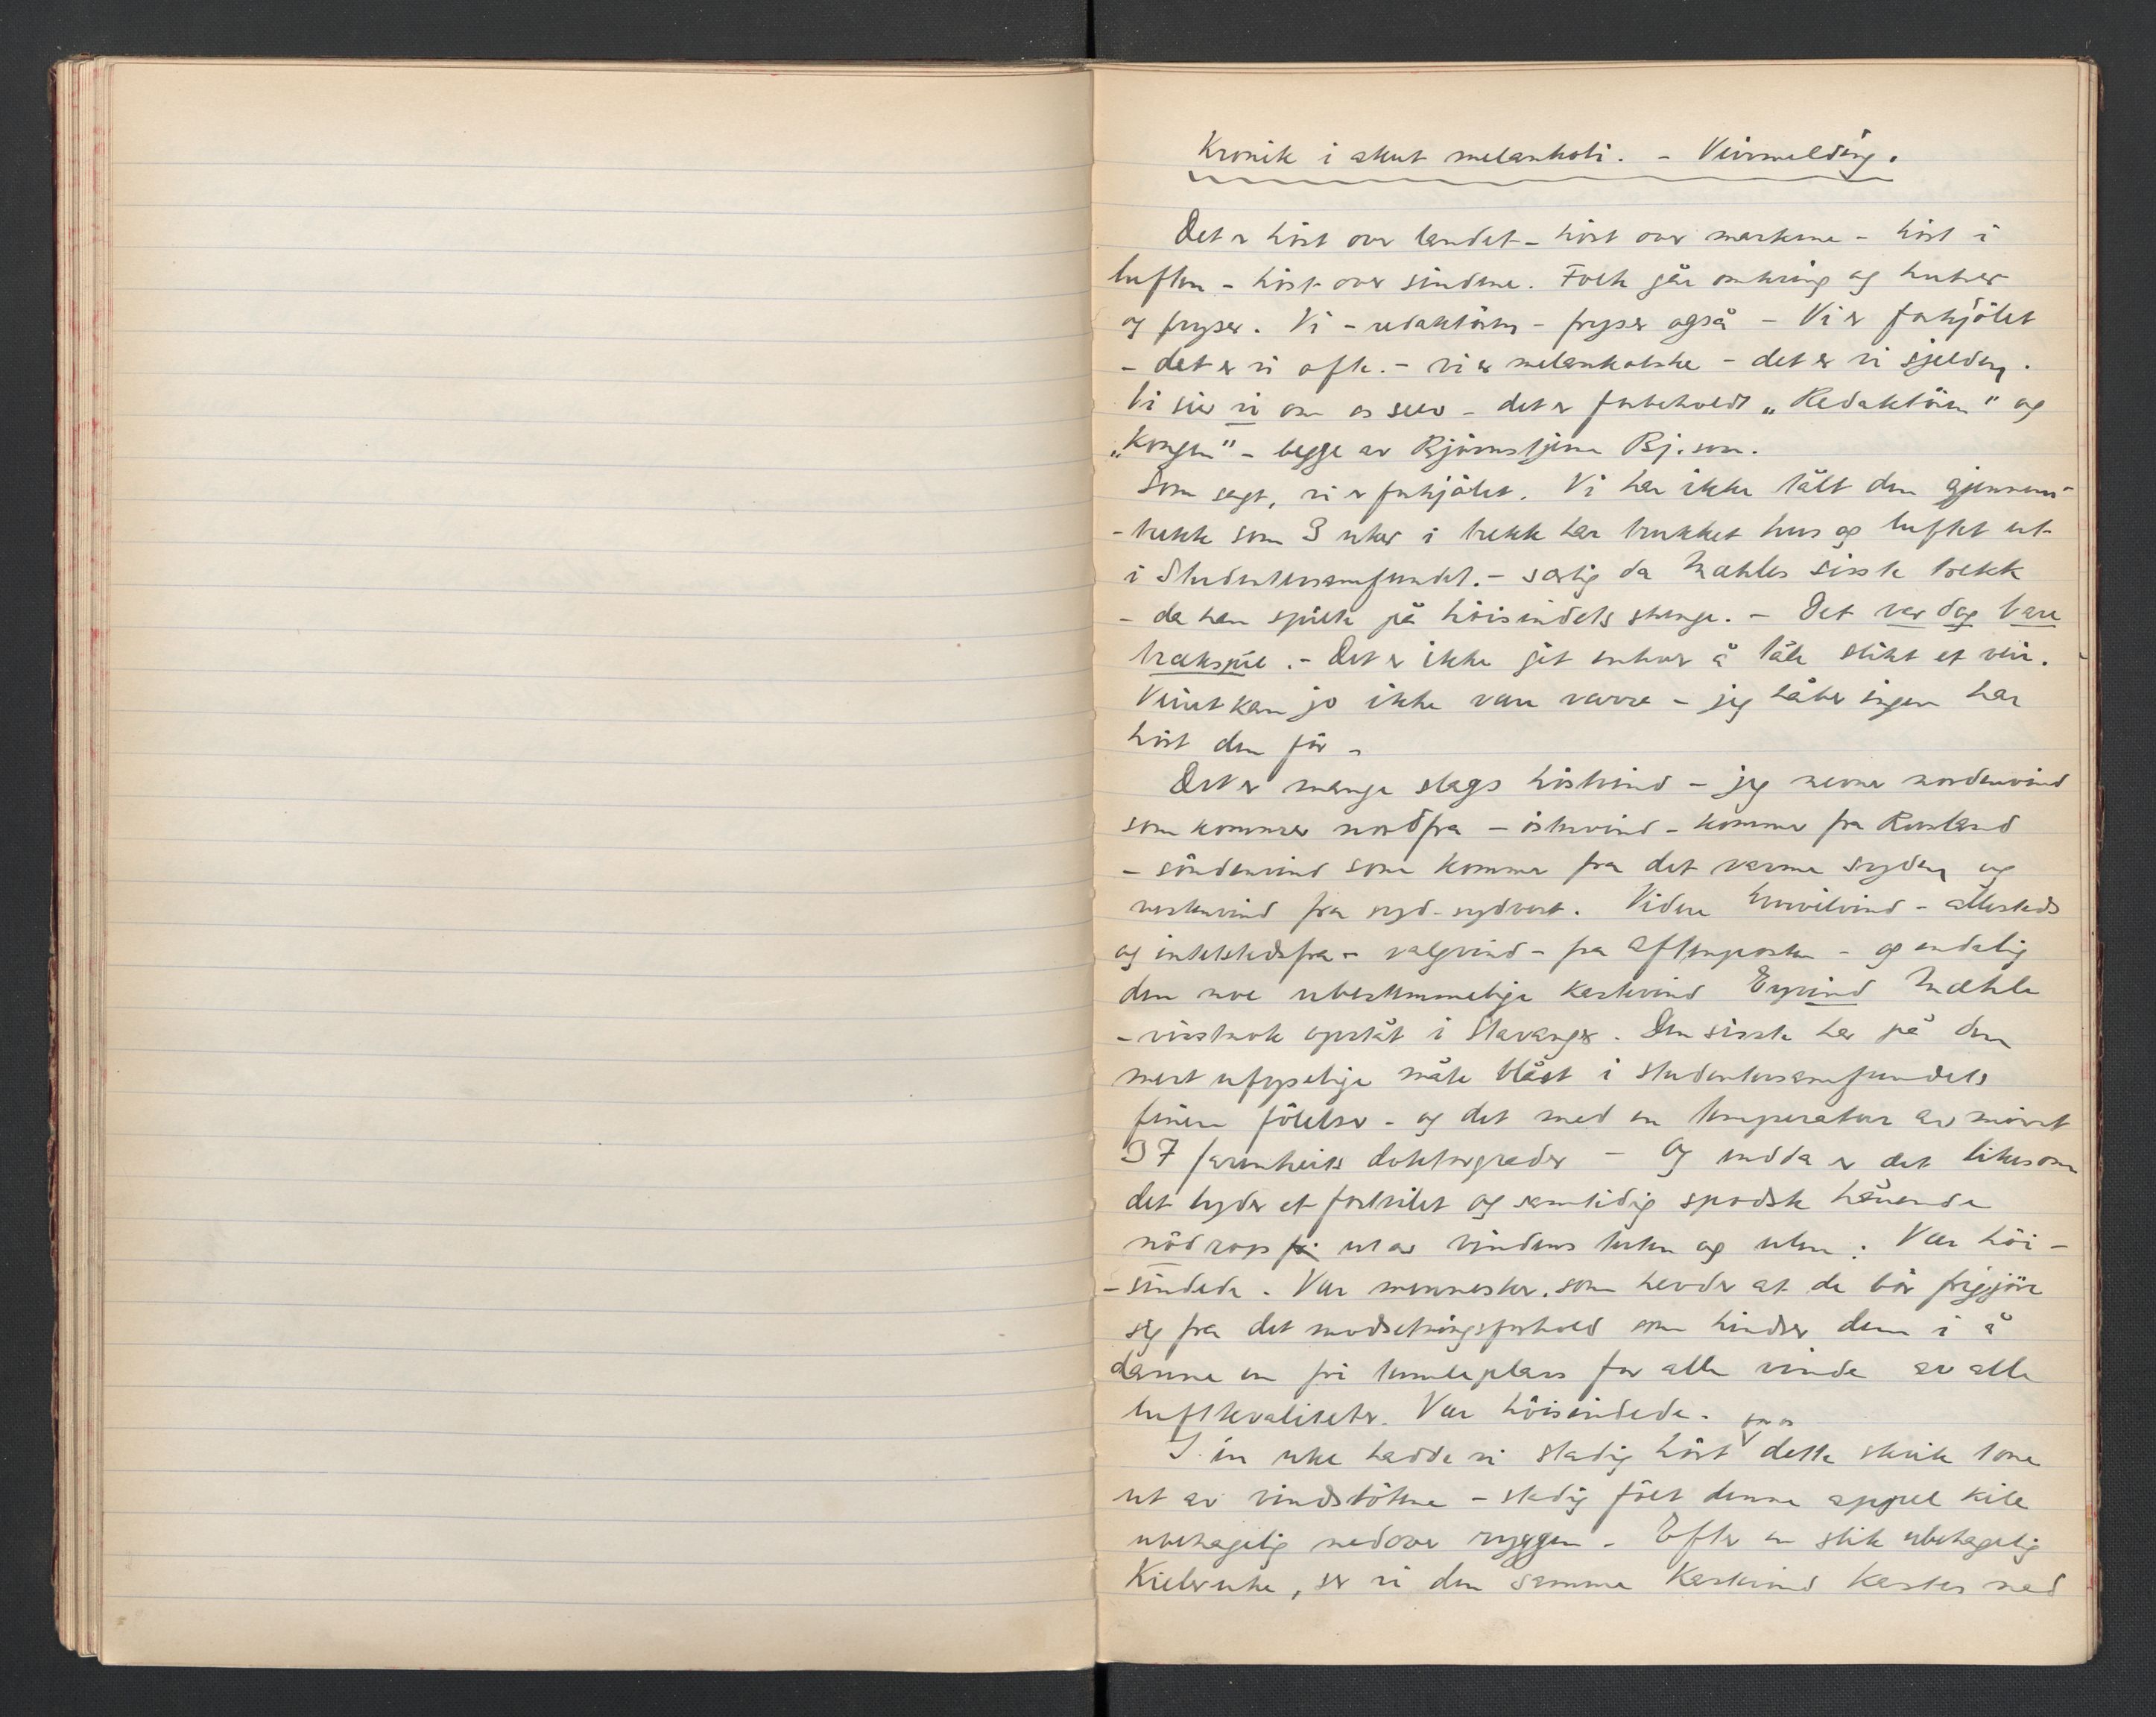 Kronik i akut melankoli. - Veirmelding.
Det er höst over landet - höst over markene - höst i
luften - höst over sindene. Folk går omkring og hutrer
og fryser. Vi - redaktören - fryser også - Vi er forkjölet
- det er vi ofte. - vi er melankolske - det er vi sjelden.
Vi sier vi om os selv - det er forbeholdt "Redaktören" og
"Kongen" - begge av Björnstjerne Bj.son.
Som sagt, vi er forkjölet. Vi har ikke tålt den gjennem-
-trekk som 3 uker i trekk har trukket hus og luftet ut
i Studentersamfundet. - særlig da Mæhles siste trekk
- da han spilte på höisindets strenge. - Det var dog bare
trækspil. - Det er ikke git enhver å tåle slikt et veir.
Veiret kan jo ikke være værre - jeg håber ingen har
hört den för -
Det er mange slags höstvind - jeg nevner nordenvind
som kommer nordfra - östenvind - kommer fra Rusland
- söndenvind som kommer fra det varme syden og
vestenvind fra syd-sydvest. Videre hvirvelvind - allesteds
og intetstedsfra - valgvind - fra Aftenposten - og endelig
den noe ubestemmelige kastevind Eyvind Mæhle
- visstnok opstått i Stavanger. Den siste har på den
mest ufyselige måte blåst i studentersamfundets
finere fölelser - og det med en temperatur av minst
37 farenheits doktorgrader - Og endda er det likesom
det lyder et fortvilet og samtidig spodsk hånende
nödrop ut av vindens tuten og ulen: Vær höi-
-sindede. Vær mennesker, som hevder at de bör frigjöre
sig fra det modsetningsforhold som hindrer dem i å
danne en fri tumleplass for alle vinde av alle
luftkvaliteter. Vær höisindede.
I en uke hadde vi stadig hört for os dette skrik tone
ut av vindstötene - stadig fölt denne appel kile
ubehagelig nedover ryggen. Efter en slik ubehagelig
Kieleruke, ser vi den samme Kastevind kastes ned